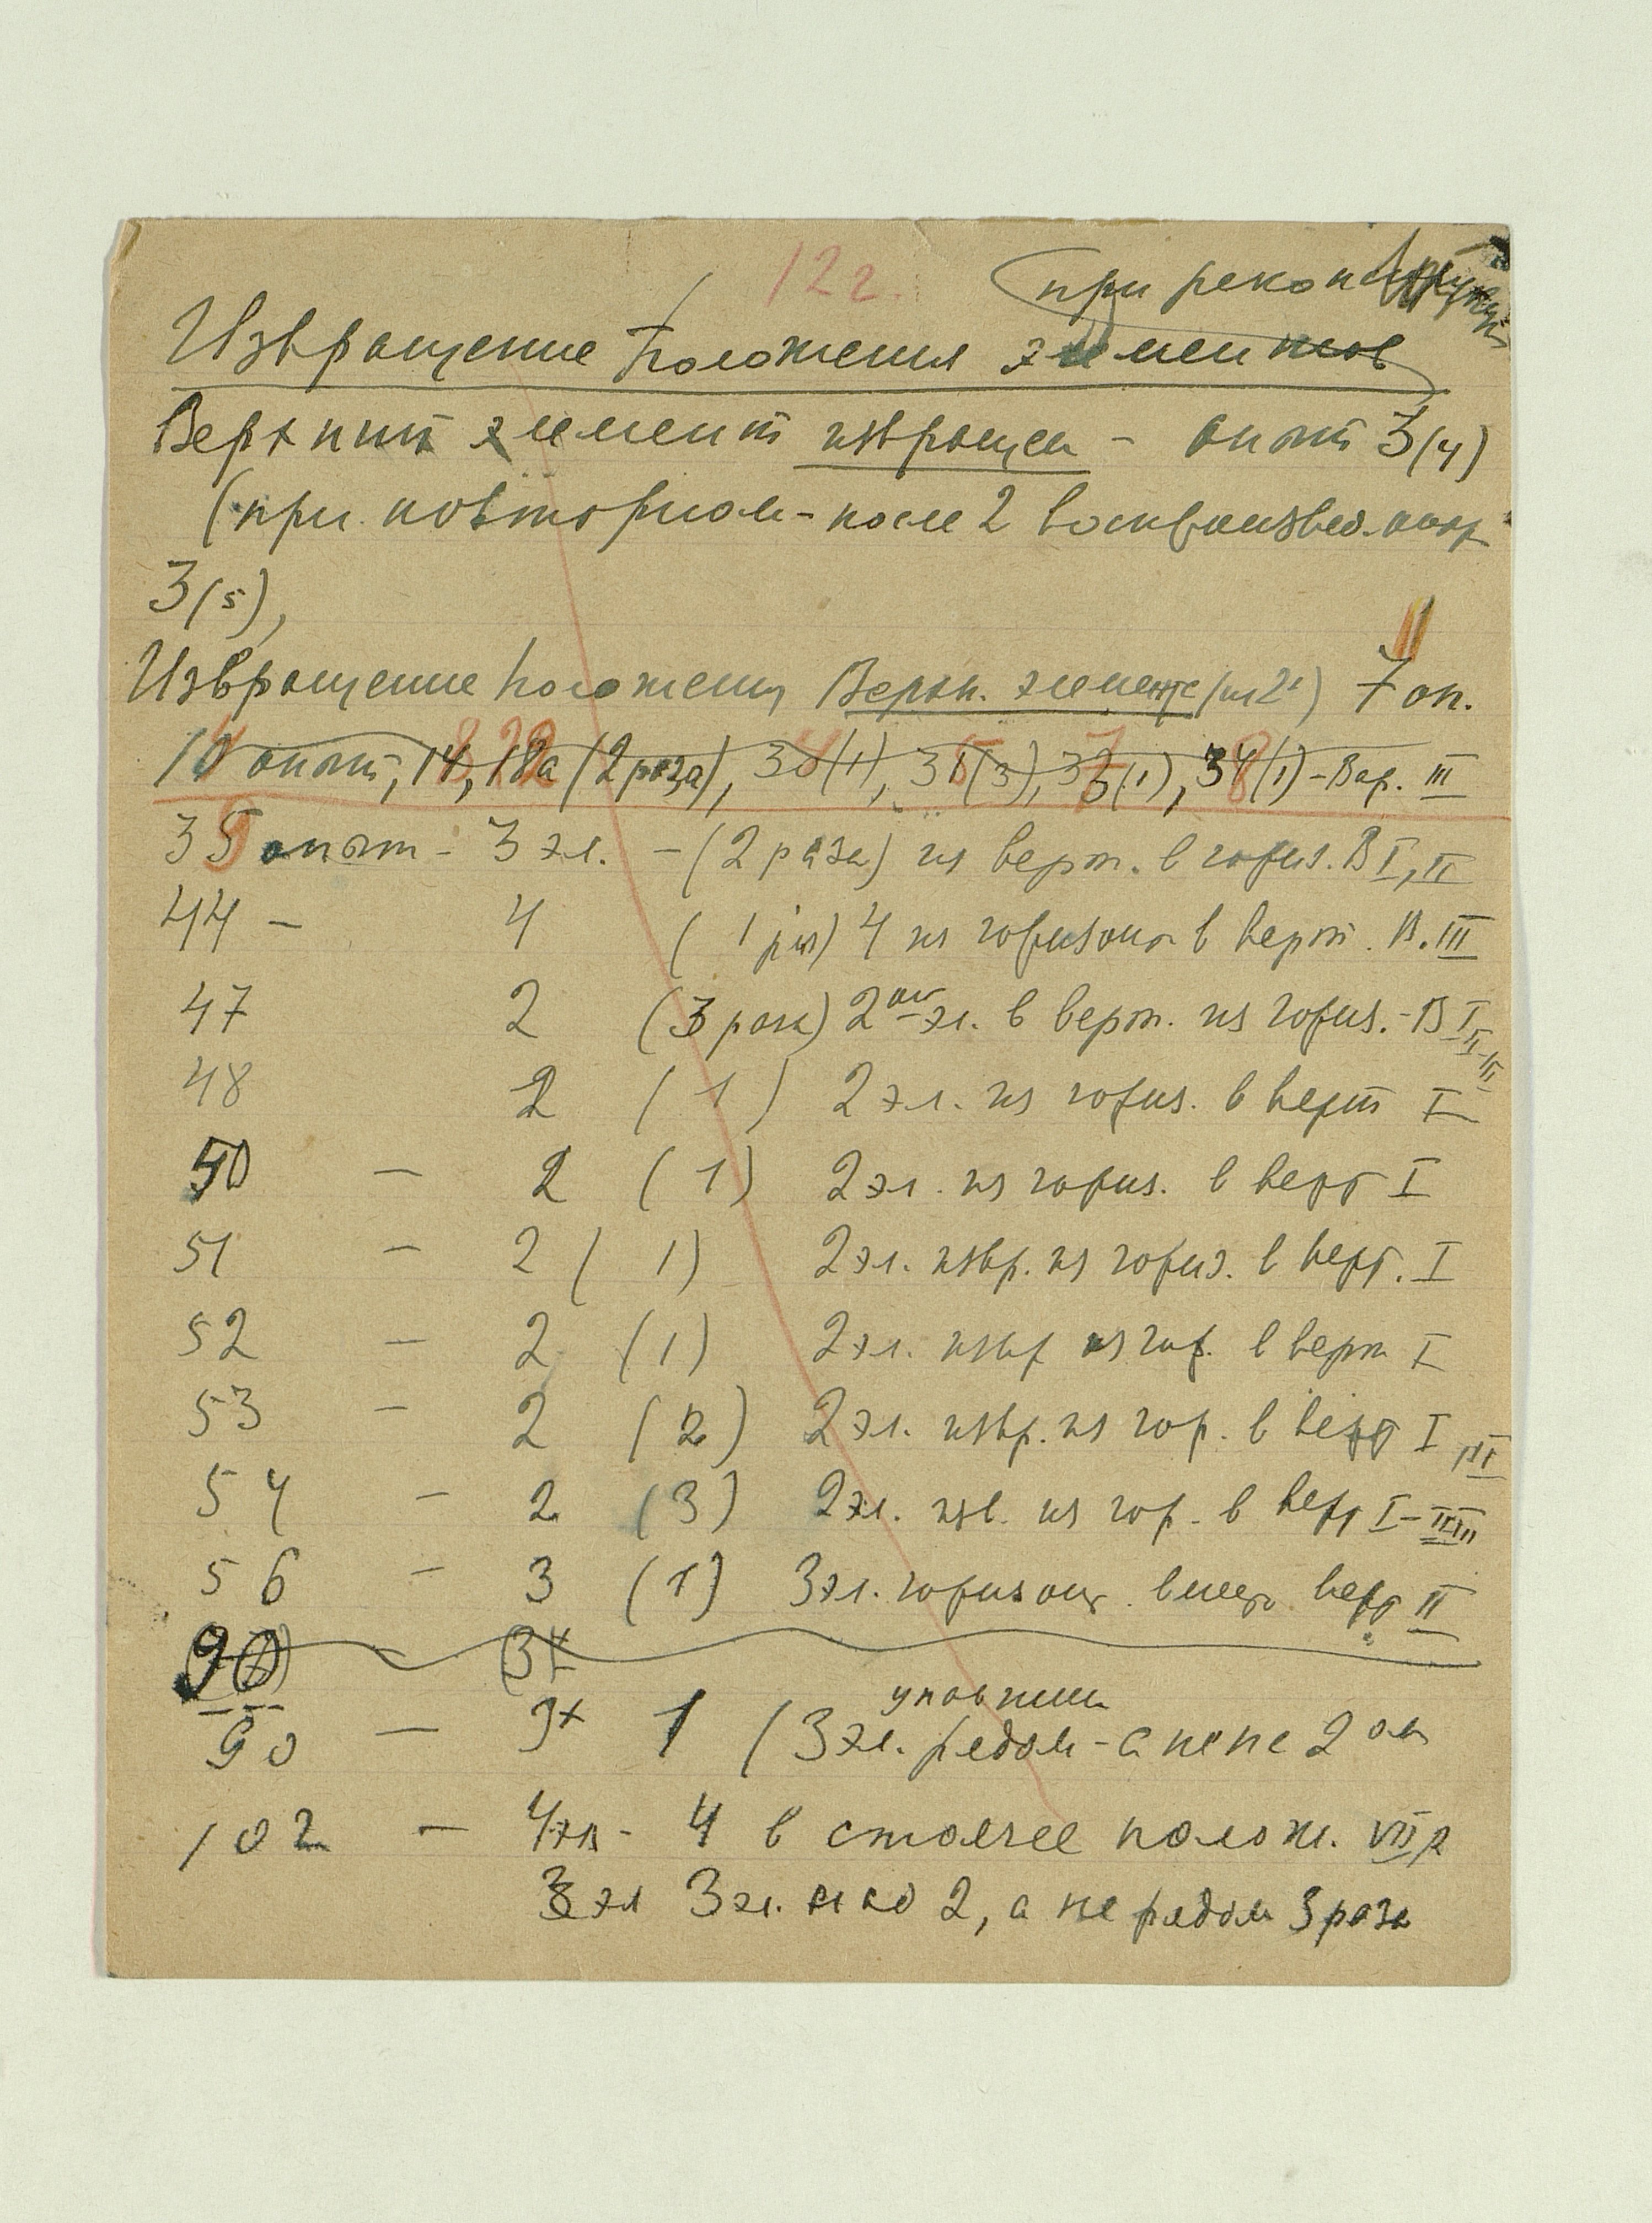 12г.
при реконструкции
Извращение положения элементов
Верхний элемент извращен - опыт 3(4)
(при повторном - после 2 воспроизвед. опыт
3(5),
Извращение положения Верхн. элемента (из 2х) 7 оп.
10 опыт, 14, 18а (2 раза), 30(1), 31(3), 33(1), 34(1) - Вар. III
35 опыт - 3 эл. - (2 раза) из верт. в гориз. В I, II
44 - 4 (1 раз) 4 из горизонт в верт. В. III
47 2 (3 раза) 2ой эл. в верт. из гориз. - В I II-III
48 2 (1) 2 эл. из гориз. в верт I
50 - 2 (1) 2 эл. из гориз. в верт I
51 - 2 (1) 2 эл. извр. из гориз. в верт. I
52 - 2 (1) 2 эл. извр из гор. в верт I
53 - 2 (2) 2 эл. извр. из гор. в верт I, III
54 - 2 (3) 2 эл. изв. из гор. в верт I-II III
56 - 3 (1) 3 эл. горизонт. вместо верт II
90 (3х
упавший
90 - 3х 1 (3 эл. рядом - а не не 2 ом
102 - 4 эл - 4 в стоячее полож. VII р
3 эл 3 эл. на 2, а не рядом 3 раза